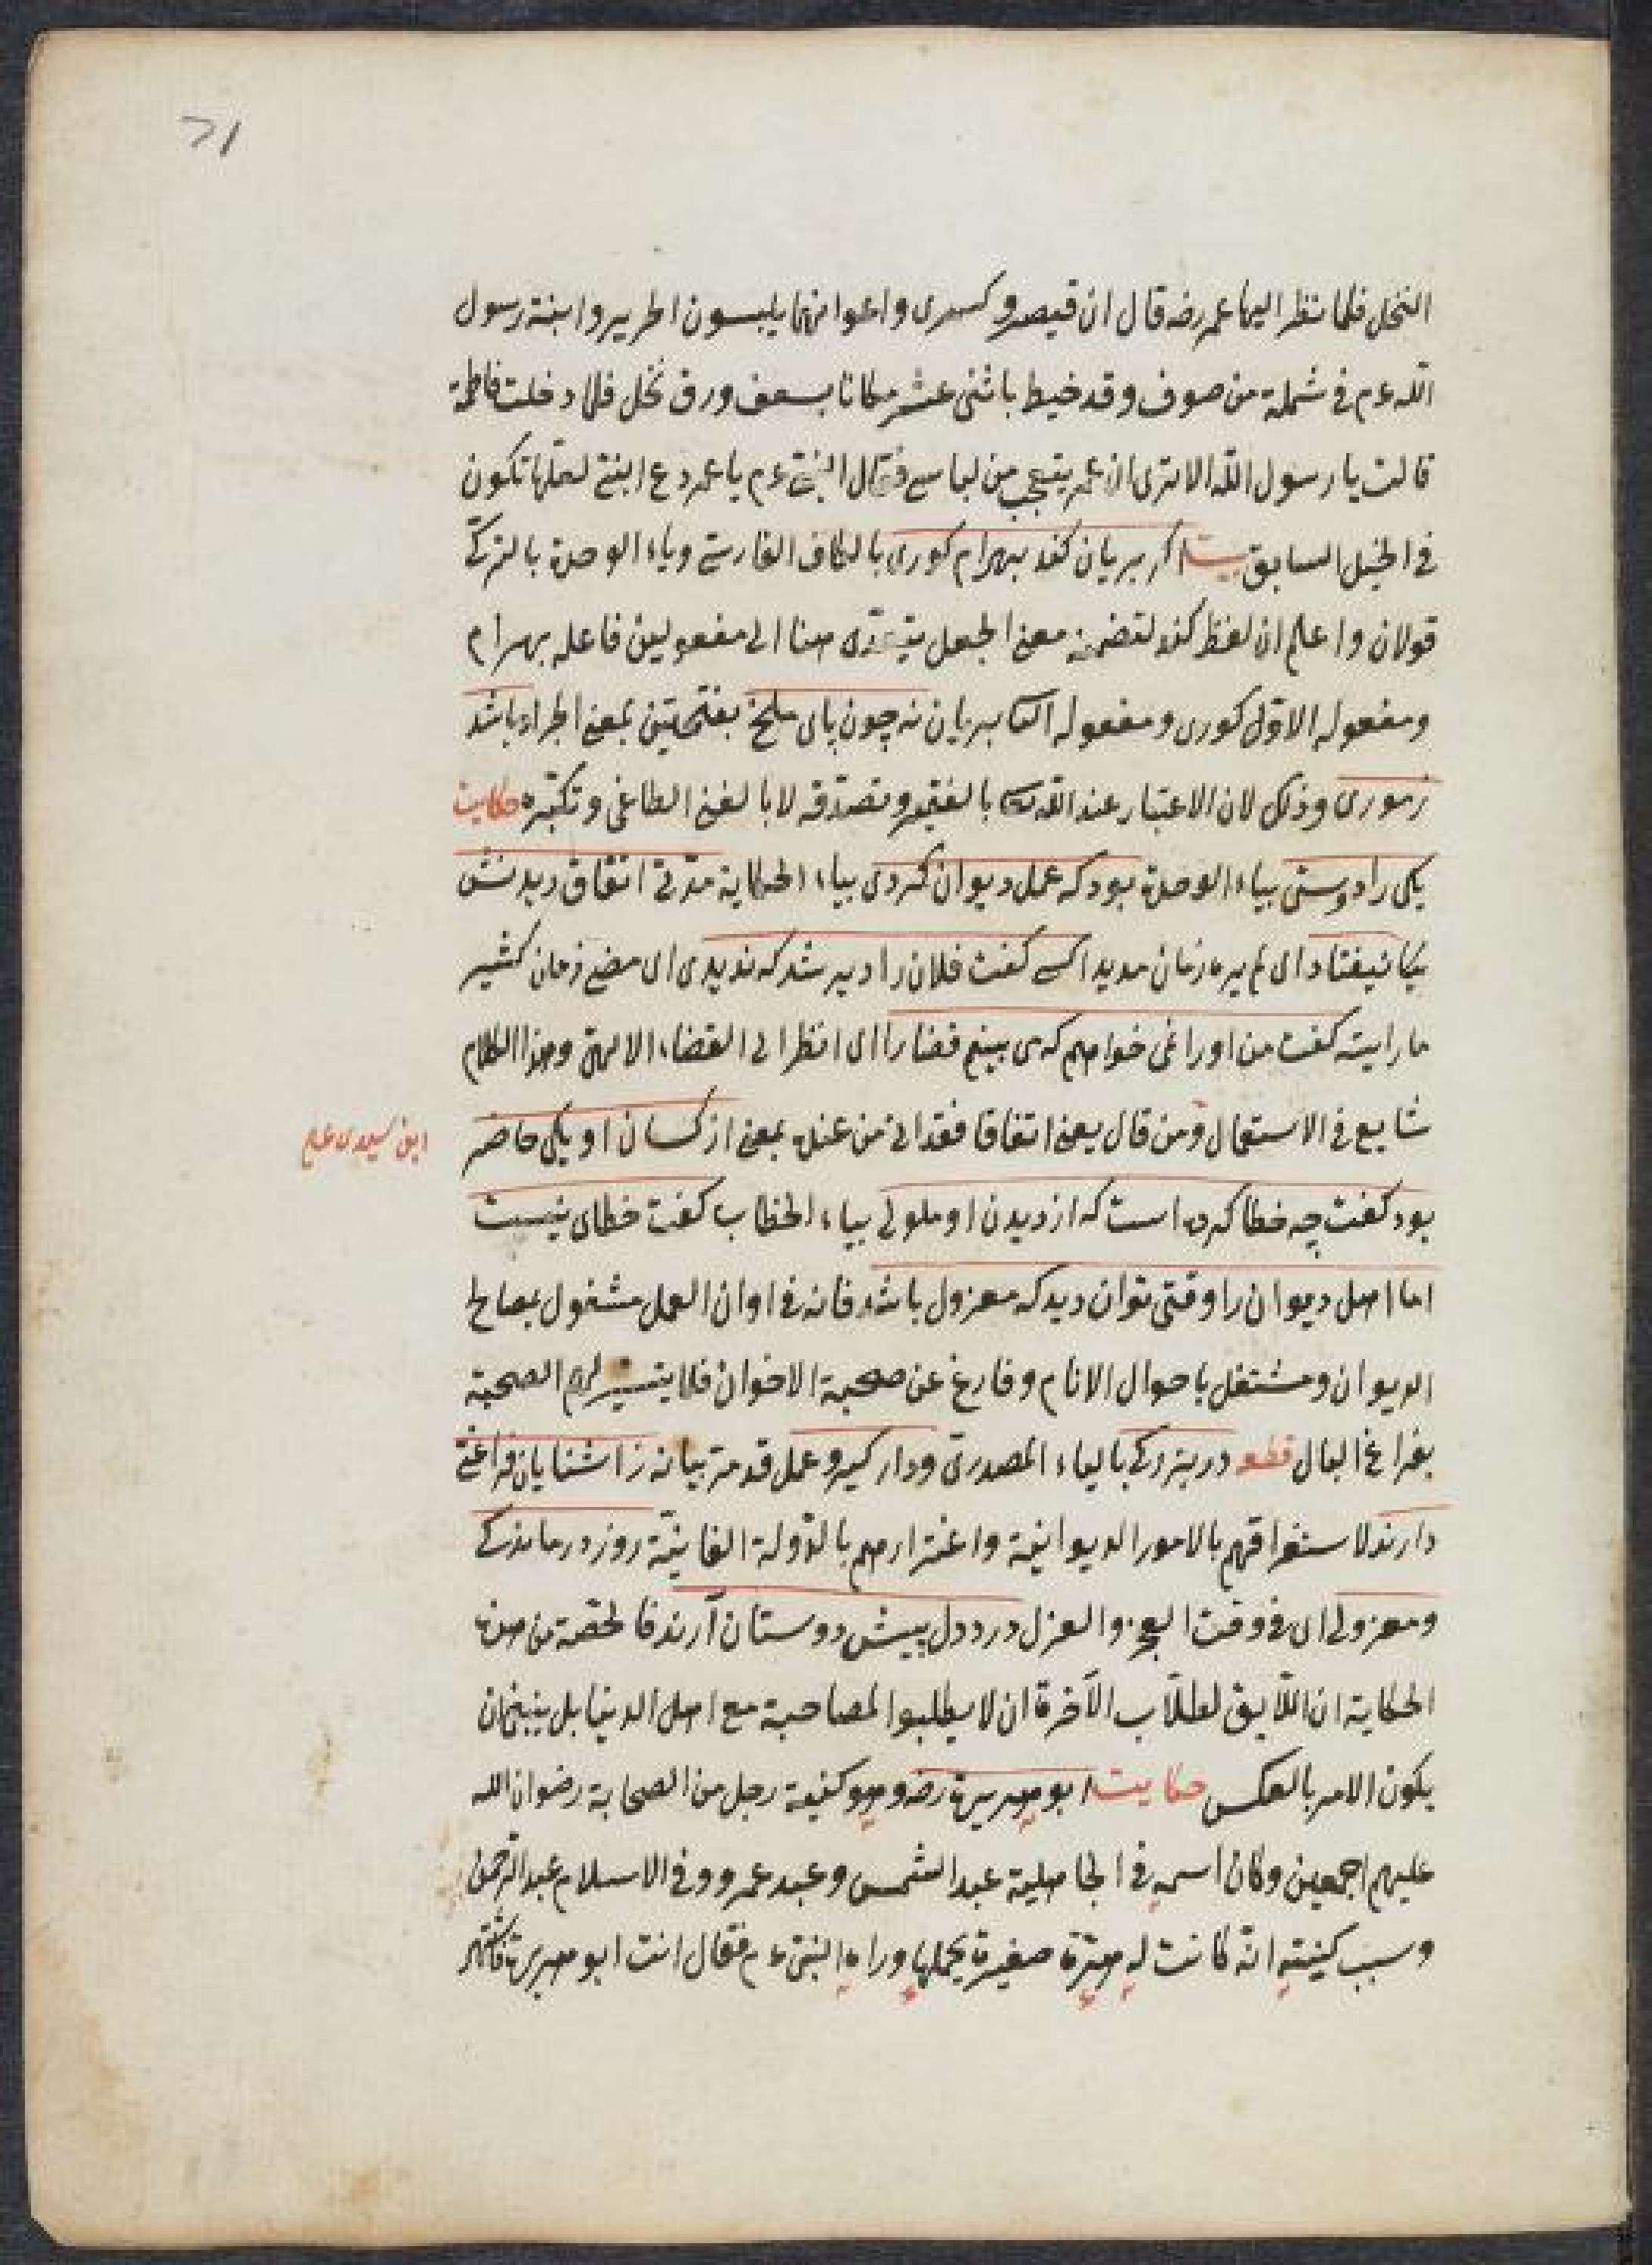 ۷۱
النخل فلما نظر اليها عمر رضه قال ان قيصر وكسرى واعوانهما يلبسون الحرير وابنة رسول
الله ءم فى شملة من صوف وقد خيط باثنى عشر مكانا بسعف ورق نخل فلما دخلت فاطمة
قالت يا رسول الله الا ترى ان عمر يتعجب من لباسى فقال النبى ءم يا عمر دع ابنتى لعلها تكون
فى الخيل السابق بيت اكر بريان كند بهرام كورى بالكاف الفارسى وياء الوحدة بالتركى
قولان واعلم ان لفظ كند لتضمنه معنى الجعل يتعدى هنا الى مفعولين فاعله بهرام
ومفعوله الاول كورى ومفعوله الثانى بريان نه چون پاى ملخ بفتحتين بمعنى الجراد باشد
زمورى وذلك لان الاعتبار عند الله تعالى بالفقير وتصدقه لا بالغنى الطاغى وتكبره حكايت
يكى را دوستى بياء الوحدة بود كه عمل ديوان كردى بياء الحكاية مدتى اتفاق ديدنش
نيفتاد اى لم يره زمان مديد اكسى كفت فلان را دير شد كه نديدى اى مضى زمان كثير
ما رايته كفت من او را نمى خواهم كه مى بينم قضا را اى انظر الى القضاء الالهى وهذا الكلام
شايع فى الاستعمال ومن قال يعنى اتفاقا فقد انى من عنده بمعنى از كسان او يكى حاضر
ابن سيدى على
بود كفت چه خطا كرده است كه از ديدن او ملولى بياء الخطاب كفت خطاى نيست
اما اهل ديوان را وقتى توان ديد كه معزول باشد فانه فى اوان العمل مشغول بمصالح
الديوان ومشتغل باحوال الانام وفارغ عن صحبة الاخوان فلا يتيسر لهم الصحبة
بفراغ البال قطعه در بزركى بالياء المصدرى ودار كير وعمل قد مر بيانه ز اشنايان فراغتى
دارند لاستغراقهم بالامور الديوانية واغترارهم بالدولة الفانية روز درماندكى
ومعزولى اى فى وقت العجز والعزل درد دل پيش دوستان آرند فالحصة من هذه
الحكاية ان اللايق لطلاب الآخرة ان لا يطلبوا المصاحبة مع اهل الدنيا بل ينبغى ان
يكون الامر بالعكس حكايت ابو هريرة رضه وهو كنية رجل من الصحابة رضوان الله
عليهم اجمعين وكان اسمه فى الجاهلية عبد الشمس وعبد عمرو وفى الاسلام عبد الرحمن
وسبب كنيته انه كانت له هرة صغيرة يحملها وراه النبى ءم فقال انت ابو هريرة فاشتهر